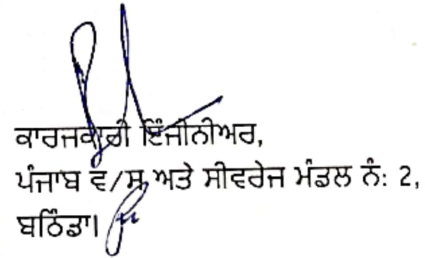 ਕਾਰਜਕਾਰੀ ਇੰਜੀਨੀਅਰ,
ਪੰਜਾਬ ਵ/ਸ ਅਤੇ ਸੀਵਰੇਜ ਮੰਡਲ ਨੰ: 2,
ਬਠਿੰਡਾ।